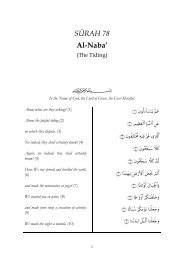 SŪRAH 78
Al-Naba’
(The Tiding)
In the Name of God, the Lord of Grace, the Ever Merciful.
About what are they asking? (1)
About the fateful tiding (2)
on which they dispute. (3)
No indeed; they shall certainly know! (4)
Again, no indeed; they shall certainly know! (5)
Have We not spread and levelled the earth, (6)
and made the mountains as pegs? (7)
We created you in pairs, (8)
and made your sleep a cessation of activity. (9)
We made the night a mantle, (10)
عَمَّ يَتَسَاءَلُونَ ①
عَنِ النَّبَإِ الْعَظِيمِ ②
الَّذِي هُمْ فِيهِ مُخْتَلِفُونَ ③
كَلَّا سَيَعْلَمُونَ ④
ثُمَّ كَلَّا سَيَعْلَمُونَ ⑤
أَلَمْ نَجْعَلِ الْأَرْضَ مِهَادًا ⑥
وَالْجِبَالَ أَوْتَادًا ⑦
وَخَلَقْنَاكُمْ أَزْوَاجًا ⑧
وَجَعَلْنَا نَوْمَكُمْ سُبَاتًا ⑨
وَجَعَلْنَا اللَّيْلَ لِبَاسًا ⑩